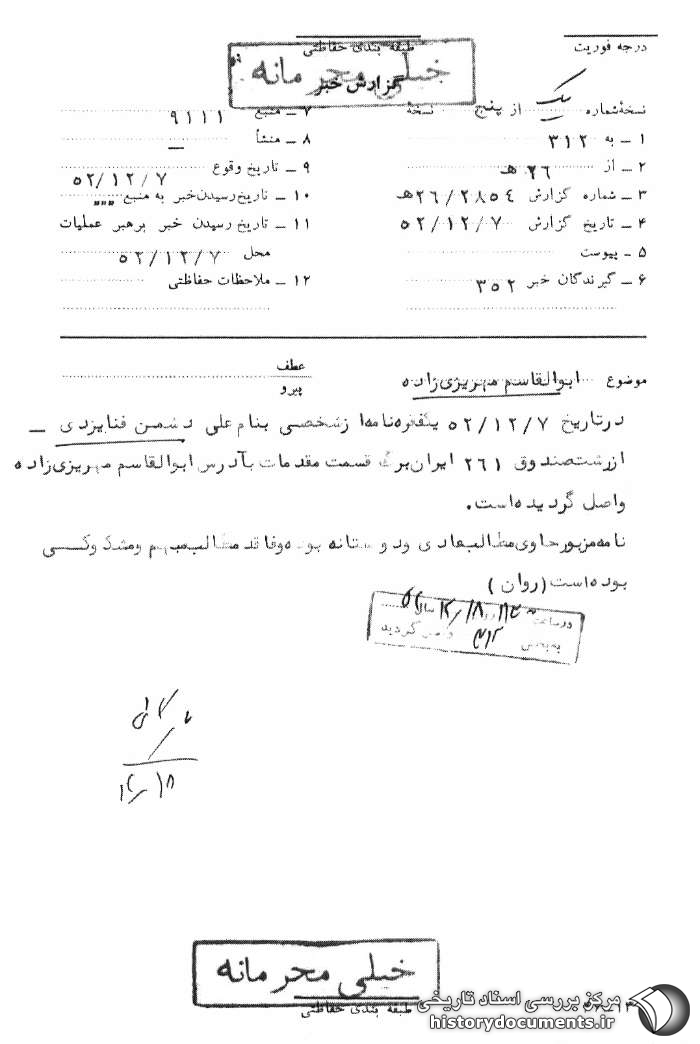 درجه فوریت
طبقه بندی حفاظتی
خیلی محرمانه
گزارش خبر
نسخهٔ شماره یک از پنج نسخهٔ
۱ ــ به ۳۱۲
۲ ــ از ۲۶ هـ
۳ ــ شماره گزارش ۲۸۵۴/۲۶هـ
۴ ــ تاریخ گزارش ۵۲/۱۲/۷
۵ ــ پیوست
۶ ــ گیرندگان خبر ۳۵۲
۷ ــ منبع ۹۱۱۱
۸ ــ منشأ ــ
۹ ــ تاریخ وقوع ۵۲/۱۲/۷
۱۰ ــ تاریخ رسیدن خبر به منبع """
۱۱ ــ تاریخ رسیدن خبر برهبر عملیات
محل ۵۲/۱۲/۷
۱۲ ــ ملاحظات حفاظتی
موضوع ابوالقاسم مهریزی زاده
عطف
پیرو
درتاریخ ۵۲/۱۲/۷ یکفقره نامه ازشخصی بنام علی دشمن فنایزدی ــ
ازرشت صندوق ۲۶۱ ایران برک قسمت مقدمات بآدرس ابوالقاسم مهریزی زاده
واصل گردیده است.
نامه مزبور حاوی مطالب عادی ودوستانه بوده وفاقد مطالب مبهم ومشکوکسی
بوده است (روان)
درساعت روز ۱۲/۸ سال ۵۲
به بخش ۳۱۲ واصل گردید
بایگانی
۱۲/۸
خیلی محرمانه
طبقه بندی حفاظتی
مرکز بررسی اسناد تاریخی
historydocuments.ir